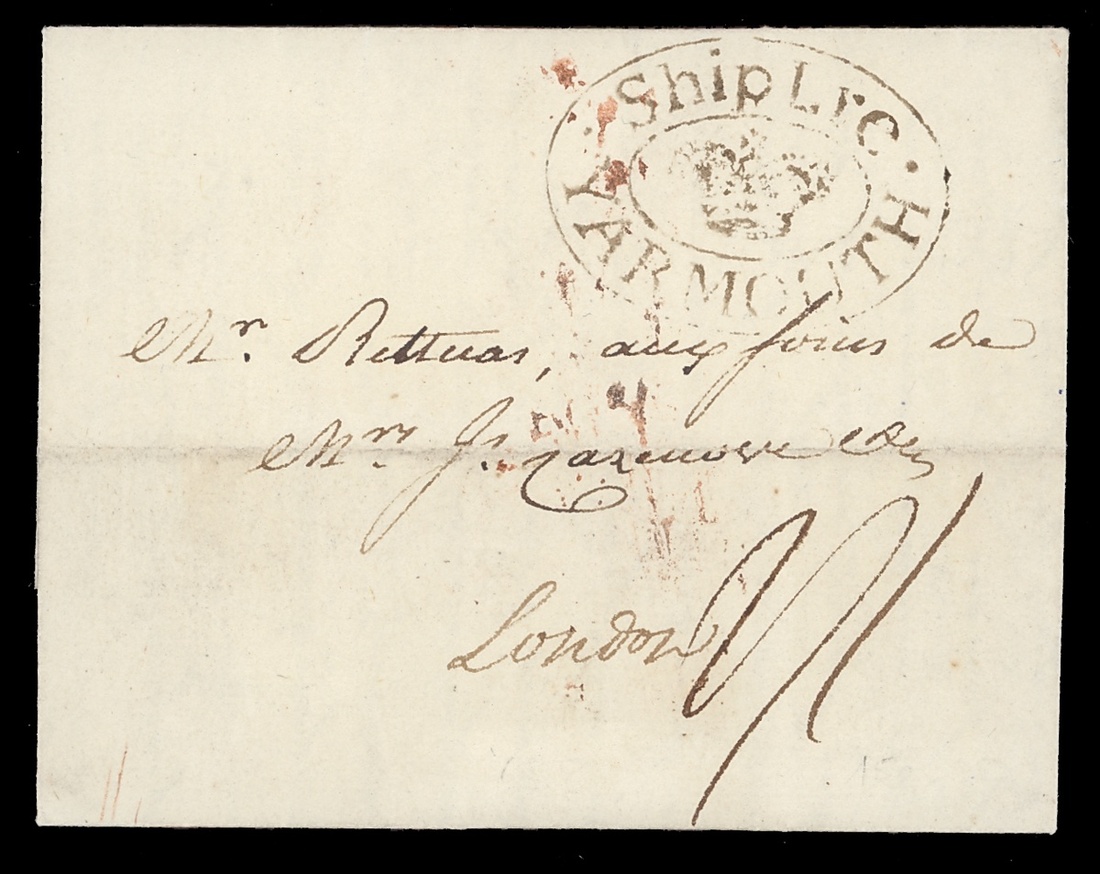 Ship Lre
YARMOUTH
Mr. Rettuas, aux soins de
Mrs. J. Cazenove &Co
London